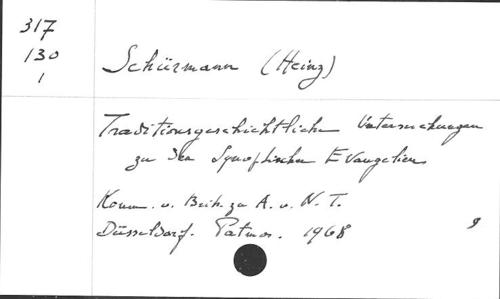 317
130
1
Schürmann (Heinz)
Traditionsgeschichtliche Untersuchungen
zu den Synoptischen Evangelien
Komm. u. Beitr. zu A. u. N. T.
Düsseldorf. Patmos. 1968